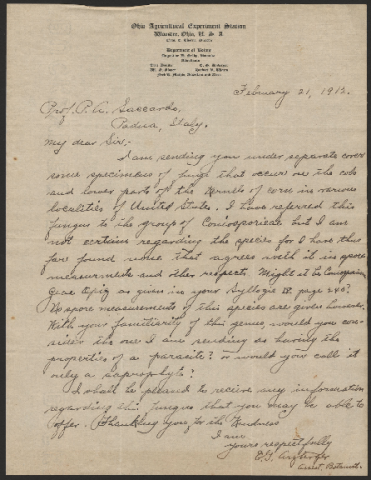 Ohio Agricultural Experiment Station
Wooster, Ohio, U. S. A.
Department of Botany
February 21, 1912.
Prof. P. A. Saccardo,
Padua, Italy.
My dear Sir,-
I am sending you under separate cover
some specimens of fungi that occurs on the cob
and lower parts of the kernels of corn in various
localities of United States. I have referred this
fungus to the group of Coniosporieae but I am
not certain regarding the species for I have thus
far found none that agrees with it in spore
measurements and other respects. Might it be Coniosporium
as given in your Sylloge page 246?
No spore measurements of this species are given however.
With your familiarity of this genus, would you con-
sider the one I am sending as having the
properties of a parasite? or would you call it
only a saprophyte?
I shall be pleased to receive any information
regarding this fungus that you may be able to
offer. Thanking you for the kindness
I am
yours respectfully
Assist. Botanist.